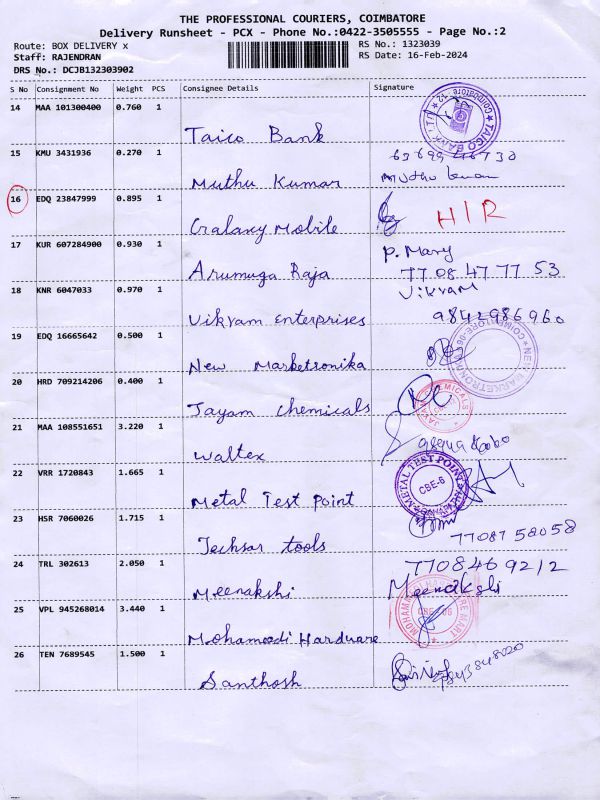 THE PROFESSIONAL COURIERS, COIMBATORE
Delivery Runsheet - PCX - Phone No.:0422-3505555 - Page No.:2
Route: BOX DELIVERY x
RS No.: 1323039
Staff: RAJENDRAN
RS Date: 16-Feb-2024
DRS No.: DCJB132303902
S No Consignment No Weight PCS Consignee Details Signature
14 MAA 101300400 0.760 1
Taico Bank
TAICO BANK LTD
Coimbatore - 12
15 KMU 3431936 0.270 1
Muthu Kumar
16 EDQ 23847999 0.895 1
Cralaxy Mobile H/R
17 KUR 607284900 0.930 1 P. Mary
Arumuga Raja 77 08 47 77 53
18 KNR 6047033 0.970 1 Vikram
Vikram Enterprises 9842986960
19 EDQ 16665642 0.500 1
New Marketronika
20 HRD 709214206 0.400 1
Jayam Chemicals
21 MAA 108551651 3.220 1
Waltex
22 VRR 1720843 1.665 1
Metal Test Point
METAL TEST POINT
CBE-6
23 HSR 7060026 1.715 1
Techsar tools 77087 58058
24 TRL 302613 2.050 1 7708469212
Meenakshi Meenakshi
25 VPL 945268014 3.440 1
Mohamoedi Hardware
26 TEN 7689545 1.500 1
Santhosh